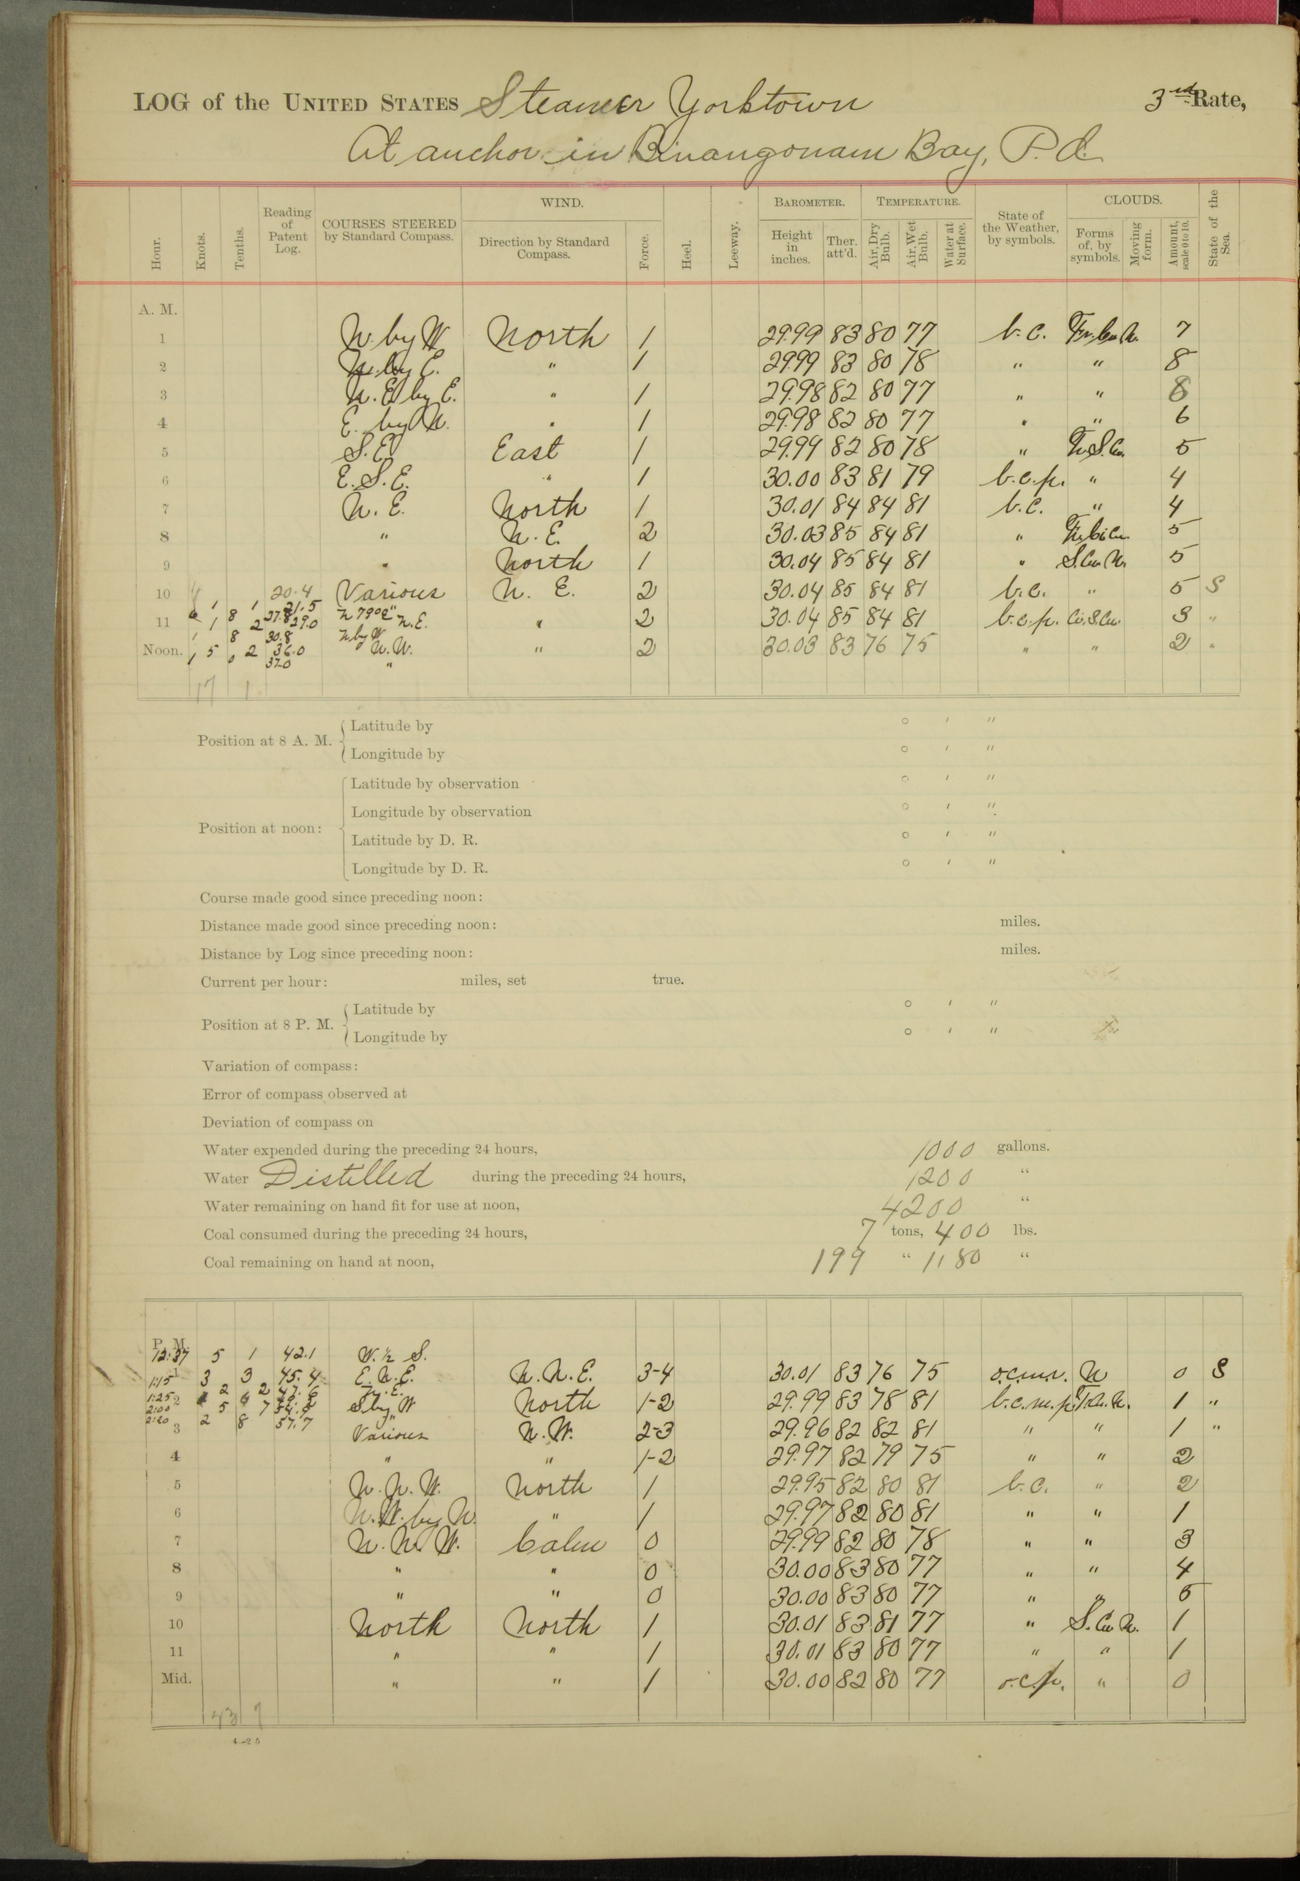 LOG of the UNITED STATES Steamer Yorktown 3rd Rate,
At anchor in Binangonam Bay, P. I.
Hour. Knots. Tenths. Reading of Patent Log. COURSES STEERED by Standard Compass. WIND. Direction by Standard Compass. Force. Heel. Leeway. BAROMETER. Height in inches. Ther. att'd. TEMPERATURE. Air, Dry Bulb. Air, Wet Bulb. Water at Surface. State of the Weather, by symbols. CLOUDS. Forms of, by symbols. Moving form. Amount, scale 0 to 10. State of the Sea.
A. M.
1 N. by W North 1 29.99 83 80 77 b. c. 7
2 N. by E. " 1 29.99 83 80 78 " " 8
3 N. E by E. " 1 29.98 82 80 77 " " 8
4 E. by N. " 1 29.98 82 80 77 " " 6
5 S. E East 1 29.99 82 80 78 " 5
6 E. S. E. " 1 30.00 83 81 79 b.c.p. " 4
7 N. E. North 1 30.01 84 84 81 b.c. " 4
8 " N. E. 2 30.03 85 84 81 " 5
9 " North 1 30.04 85 84 81 " S.Cu.N. 5
10 20.4 Various N. E. 2 30.04 85 84 81 b.c. " 5 S
1 1 21.5
11 8 27.8 N.E. " 2 30.04 85 84 81 b.c.p. Ci.S.Cu 3 "
1 2 29.0
8 30.8 N by W
Noon. 5 2 36.0 N.W. " 2 30.03 83 76 75 " " 2 "
1 0 37.0 "
17 1
Position at 8 A. M. Latitude by ° ' "
Longitude by ° ' "
Position at noon: Latitude by observation ° ' "
Longitude by observation ° ' "
Latitude by D. R. ° ' "
Longitude by D. R. ° ' "
Course made good since preceding noon:
Distance made good since preceding noon: miles.
Distance by Log since preceding noon: miles.
Current per hour: miles, set true.
Position at 8 P. M. Latitude by ° ' "
Longitude by ° ' "
Variation of compass:
Error of compass observed at
Deviation of compass on
Water expended during the preceding 24 hours, 1000 gallons.
Water Distilled during the preceding 24 hours, 1200 "
Water remaining on hand fit for use at noon, 4200 "
Coal consumed during the preceding 24 hours, 7 tons, 400 lbs.
Coal remaining on hand at noon, 199 " 1180 "
P. M.
12:37 5 1 42.1 W. ½ S.
1 1:15 3 3 45.4 E. N. E. N. N. E. 3-4 30.01 83 76 75 N 0 S
1:25 2 2 N. E.
2 2:00 5 7 S by W North 1-2 29.99 83 78 81 b.c.m.p. 1 "
2:20 2 8 57.7 "
3 Various N. W. 2-3 29.96 82 82 81 " " 1 "
4 " " 1-2 29.97 82 79 75 " " 2
5 N. N. W. North 1 29.95 82 80 81 b.c. " 2
6 N. W. by N. " 1 29.97 82 80 81 " " 1
7 N. N. W. Calm 0 29.99 82 80 78 " " 3
8 " " 0 30.00 83 80 77 " " 4
9 " " 0 30.00 83 80 77 " " 5
10 North North 1 30.01 83 81 77 " S.Cu.N. 1
11 " " 1 30.01 83 80 77 " " 1
Mid. " " 1 30.00 82 80 77 o.c.p. " 0
43 7
4-25